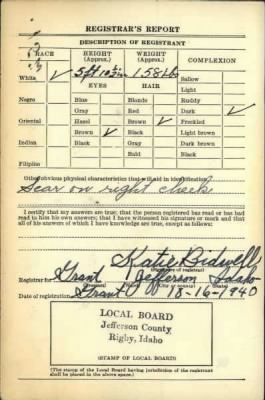 REGISTRAR'S REPORT
DESCRIPTION OF REGISTRANT
RACE HEIGHT (Approx.) WEIGHT (Approx.) COMPLEXION
White ✓ 5 ft 10½ in 158 lbs Sallow
EYES HAIR Light
Negro Blue Blonde Ruddy
Gray Red Dark ✓
Oriental Hazel Brown ✓ Freckled
Brown ✓ Black Light brown
Indian Black Gray Dark brown
Bald Black
Filipino
Other obvious physical characteristics that will aid in identification
Scar on right cheek
I certify that my answers are true; that the person registered has read or has had
read to him his own answers; that I have witnessed his signature or mark and that
all of his answers of which I have knowledge are true, except as follows:
Katie Bidwell
(Signature of registrar)
Registrar for Grant Jefferson Idaho
Date of registration 16-1940
LOCAL BOARD
Jefferson County
Rigby, Idaho
(STAMP OF LOCAL BOARD)
(The stamp of the Local Board having jurisdiction of the registrant
shall be placed in the above space.)